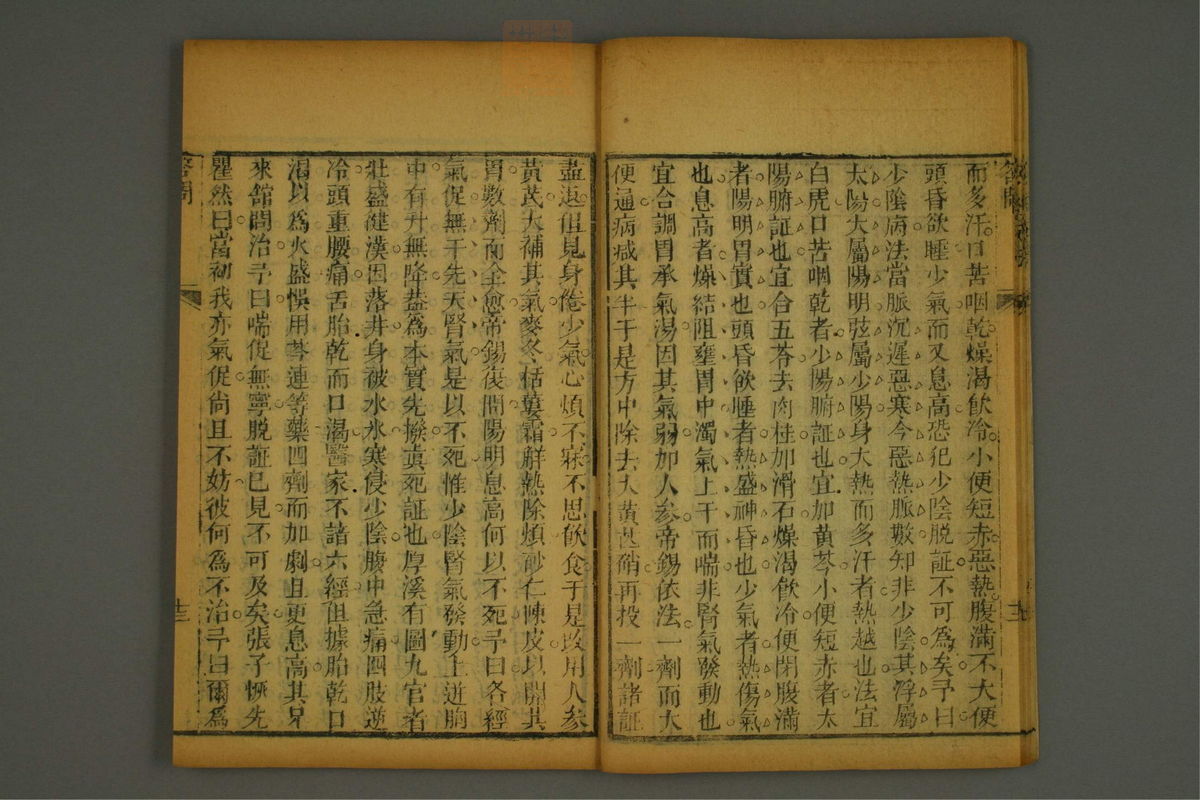 而多汗口苦咽乾燥渴飲冷小便短赤惡熱腹滿不大便
頭昏欲睡少氣而又息高恐犯少陰脫証不可為矣予曰
少陰病法當脈沉遲惡寒今惡熱脈數知非少陰其浮屬
太陽大屬陽明弦屬少陽身大熱而多汗者熱越也法宜
白虎口苦咽乾者少陽腑証也宜加黃芩小便短赤者太
陽腑証也宜合五苓去肉桂加滑石燥渴飲冷便閉腹滿
者陽明胃實也頭昏欲睡者熱盛神昏也少氣者熱傷氣
也息高者燥結阻壅胃中濁氣上干而喘非腎氣發動也
宜合調胃承氣湯因其氣弱加人參帝錫依法一劑而大
便通病減其半于是方中除去大黃芒硝再投一劑諸証
盡退但見身倦少氣心煩不寐不思飲食于是改用人參
黃芪大補其氣麥冬栝蔞霜解熱除煩砂仁陳皮以開其
胃數劑而全愈帝錫復問陽明息高何以不死予曰各經
氣促無干先天腎氣是以不死惟少陰腎氣發動上逆胸
中有升無降葢為本實先撥真死証也厚溪有圖九官者
壯盛健漢因落井身被水氷寒侵少陰腹中急痛四肢逆
冷頭重腰痛舌胎乾而口渴醫家不諳六經但據胎乾口
渴以為火盛悞用芩連等藥四劑而加劇且更息高其兄
來舘問治予曰喘促無寧脫証巳見不可及矣張子愜先
瞿然曰當初我亦氣促尙且不妨彼何為不治予曰爾為
答問
十三